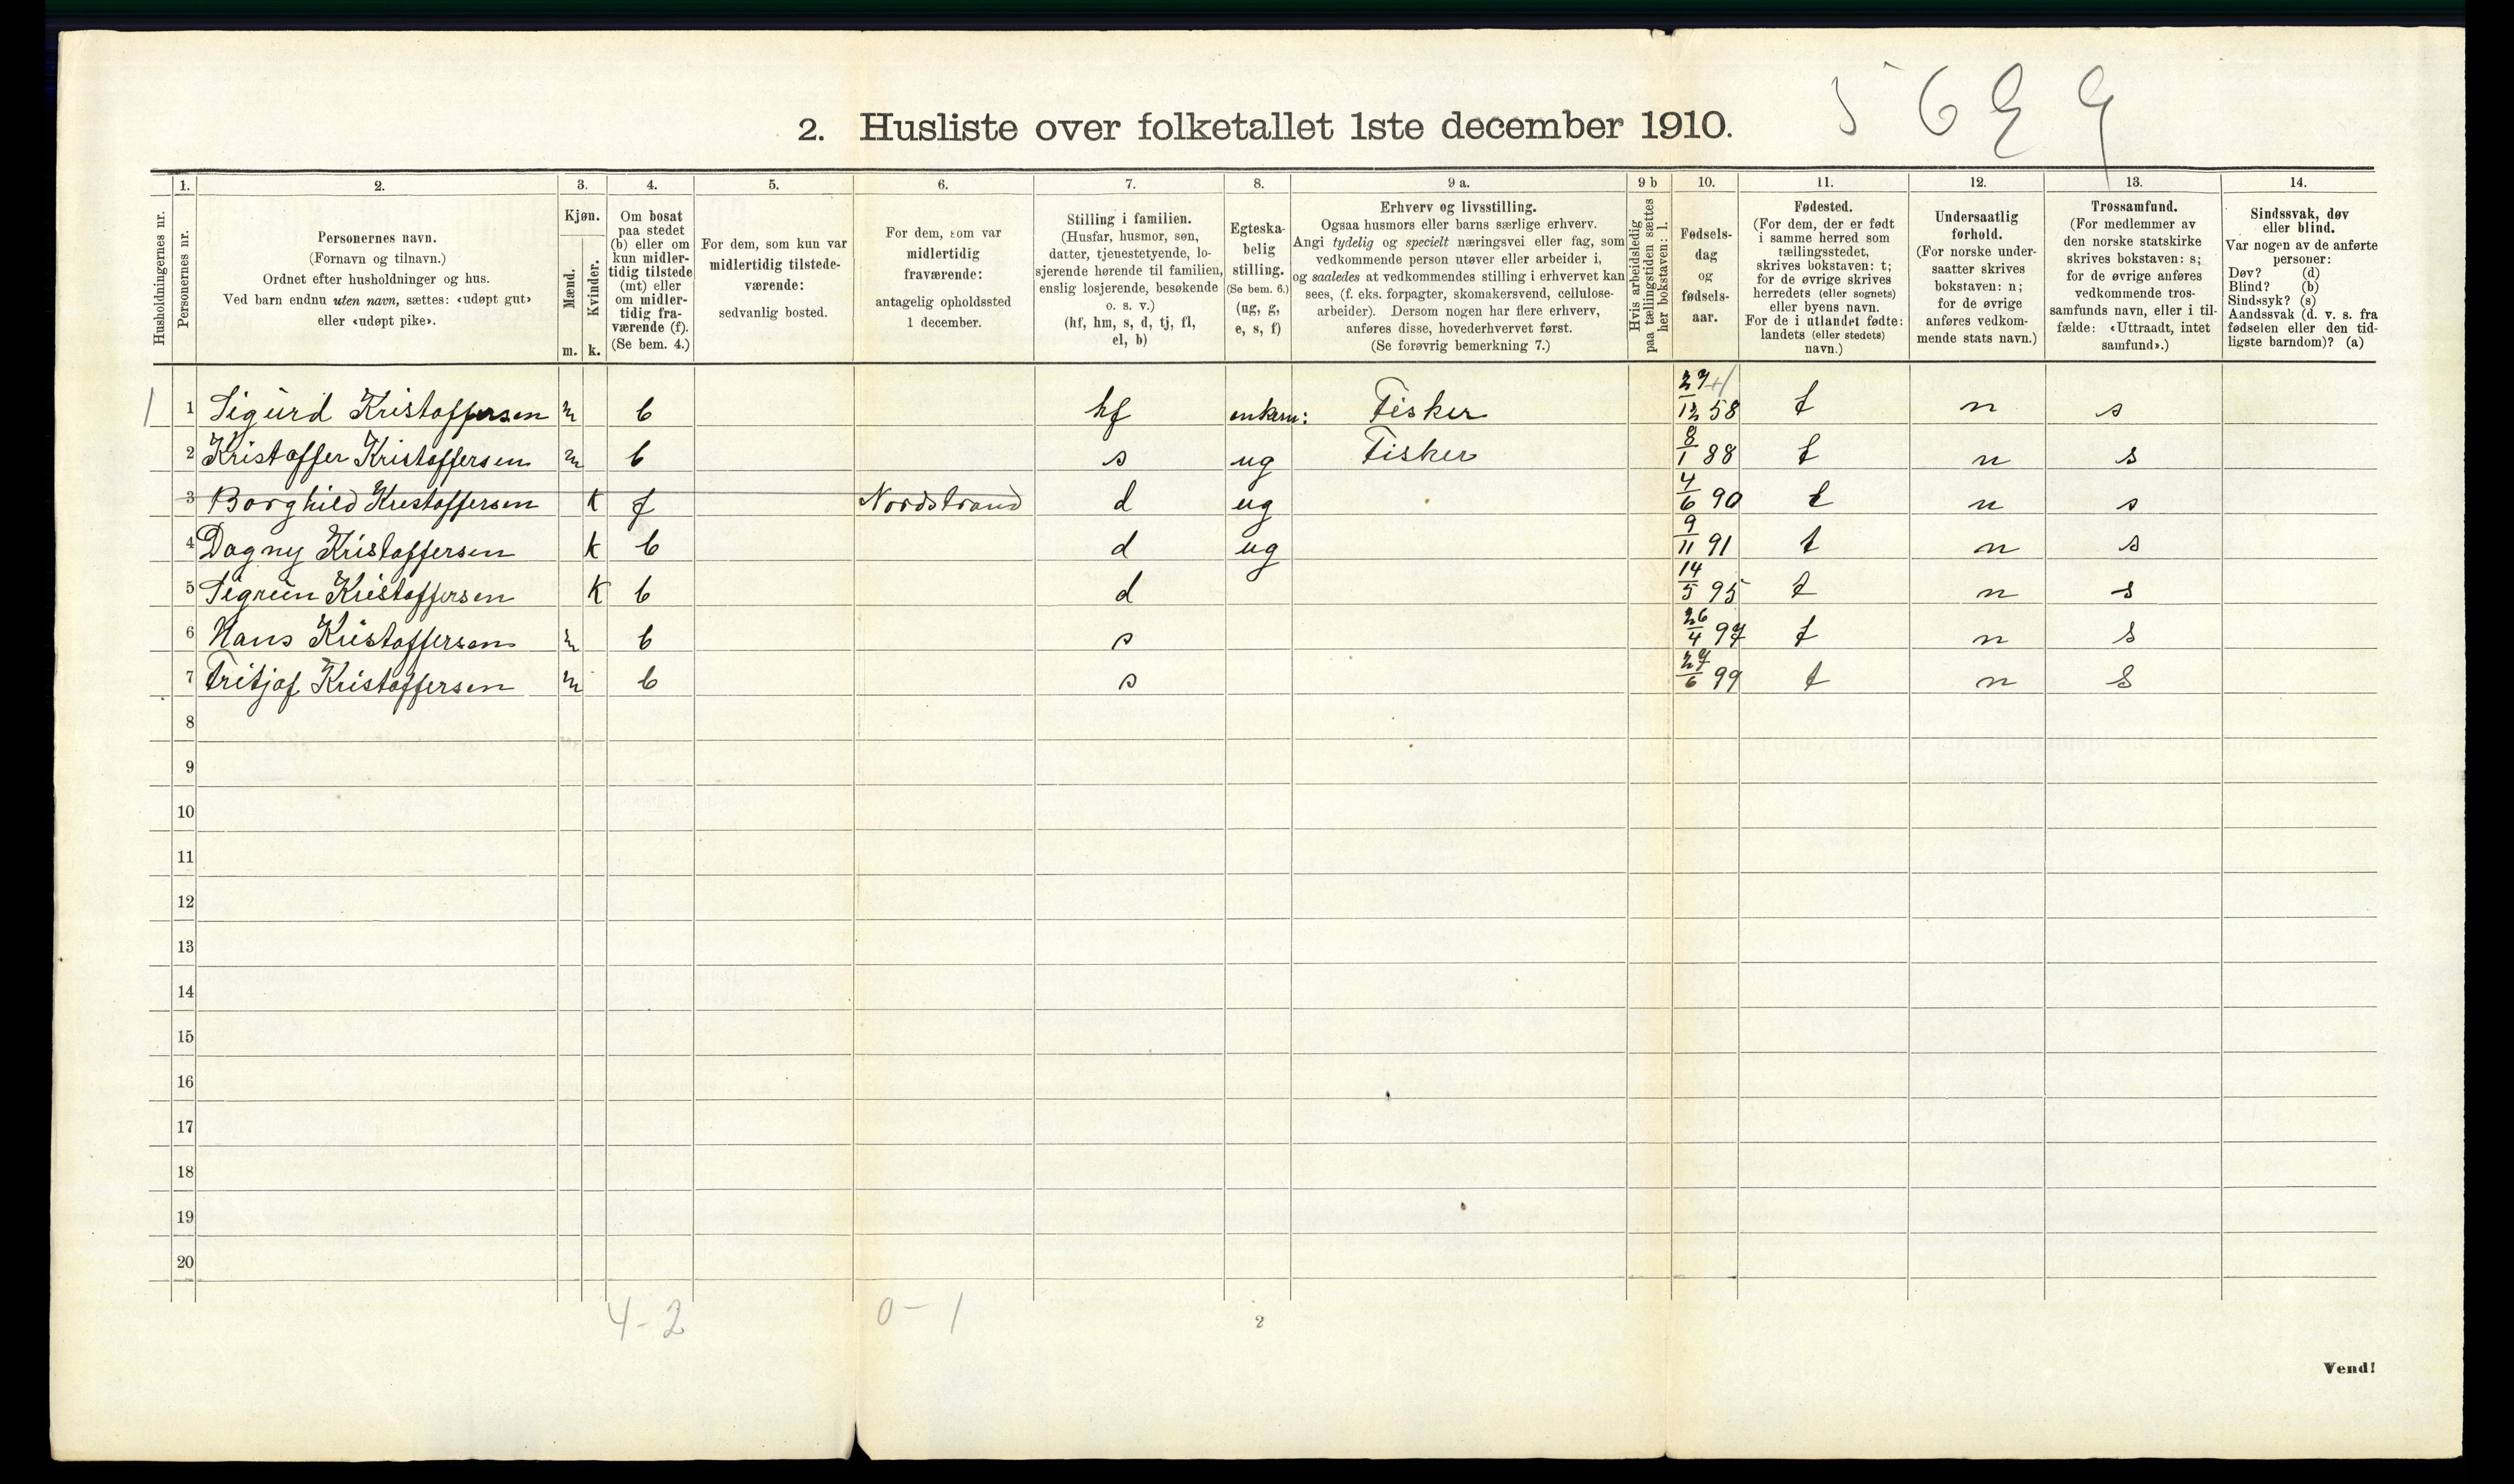 5 6 9 9
2. Husliste over folketallet 1ste december 1910.
Husholdningernes nr.
1.
Personernes nr.
2.
Personernes navn.
(Fornavn og tilnavn.)
Ordnet efter husholdninger og hus.
Ved barn endnu uten navn, sættes: «udøpt gut»
eller «udøpt pike».
3.
Kjøn.
Mænd.
Kvinder.
m. k.
4.
Om bosat
paa stedet
(b) eller om
kun midler-
tidig tilstede
(mt) eller
om midler-
tidig fra-
værende (f).
(Se bem. 4.)
5.
For dem, som kun var
midlertidig tilstede-
værende:
sedvanlig bosted.
6.
For dem, som var
midlertidig
fraværende:
antagelig opholdssted
1 december.
7.
Stilling i familien.
(Husfar, husmor, søn,
datter, tjenestetyende, lo-
sjerende hørende til familien,
enslig losjerende, besøkende
o. s. v.)
(hf, hm, s, d, tj, fl,
el, b)
8.
Egteska-
belig
stilling.
(Se bem. 6.)
(ug, g,
e, s, f)
9 a.
Erhverv og livsstilling.
Ogsaa husmors eller barns særlige erhverv.
Angi tydelig og specielt næringsvei eller fag, som
vedkommende person utøver eller arbeider i,
og saaledes at vedkommendes stilling i erhvervet kan
sees, (f. eks. forpagter, skomakersvend, cellulose-
arbeider). Dersom nogen har flere erhverv,
anføres disse, hovederhvervet først.
(Se forøvrig bemerkning 7.)
9 b
Hvis arbeidsledig
paa tællingstiden sættes
her bokstaven: l.
10.
Fødsels-
dag
og
fødsels-
aar.
11.
Fødested.
(For dem, der er født
i samme herred som
tællingsstedet,
skrives bokstaven: t;
for de øvrige skrives
herredets (eller sognets)
eller byens navn.
For de i utlandet fødte:
landets (eller stedets)
navn.)
12.
Undersaatlig
forhold.
(For norske under-
saatter skrives
bokstaven: n;
for de øvrige
anføres vedkom-
mende stats navn.)
13.
Trossamfund.
(For medlemmer av
den norske statskirke
skrives bokstaven: s;
for de øvrige anføres
vedkommende tros-
samfunds navn, eller i til-
fælde: «Uttraadt, intet
samfund».)
14.
Sindssvak, døv
eller blind.
Var nogen av de anførte
personer:
Døv? (d)
Blind? (b)
Sindssyk? (s)
Aandssvak (d. v. s. fra
fødselen eller den tid-
ligste barndom)? (a)
1 1 Sigurd Kristoffersen m b hf enkem: Fisker 27/12 58 t n s
2 Kristoffer Kristoffersen m b s ug Fisker 8/1 88 t n s
3 Borghild Kristoffersen k f Nordstrand d ug 4/6 90 t n s
4 Dagny Kristoffersen k b d ug 9/11 91 t n s
5 Sigrun Kristoffersen k b d 14/5 95 t n s
6 Hans Kristoffersen m b s 26/4 97 t n s
7 Fritjof Kristoffersen m b s 27/6 99 t n s
8
9
10
11
12
13
14
15
16
17
18
19
20
4-2 0-1
2
Vend!